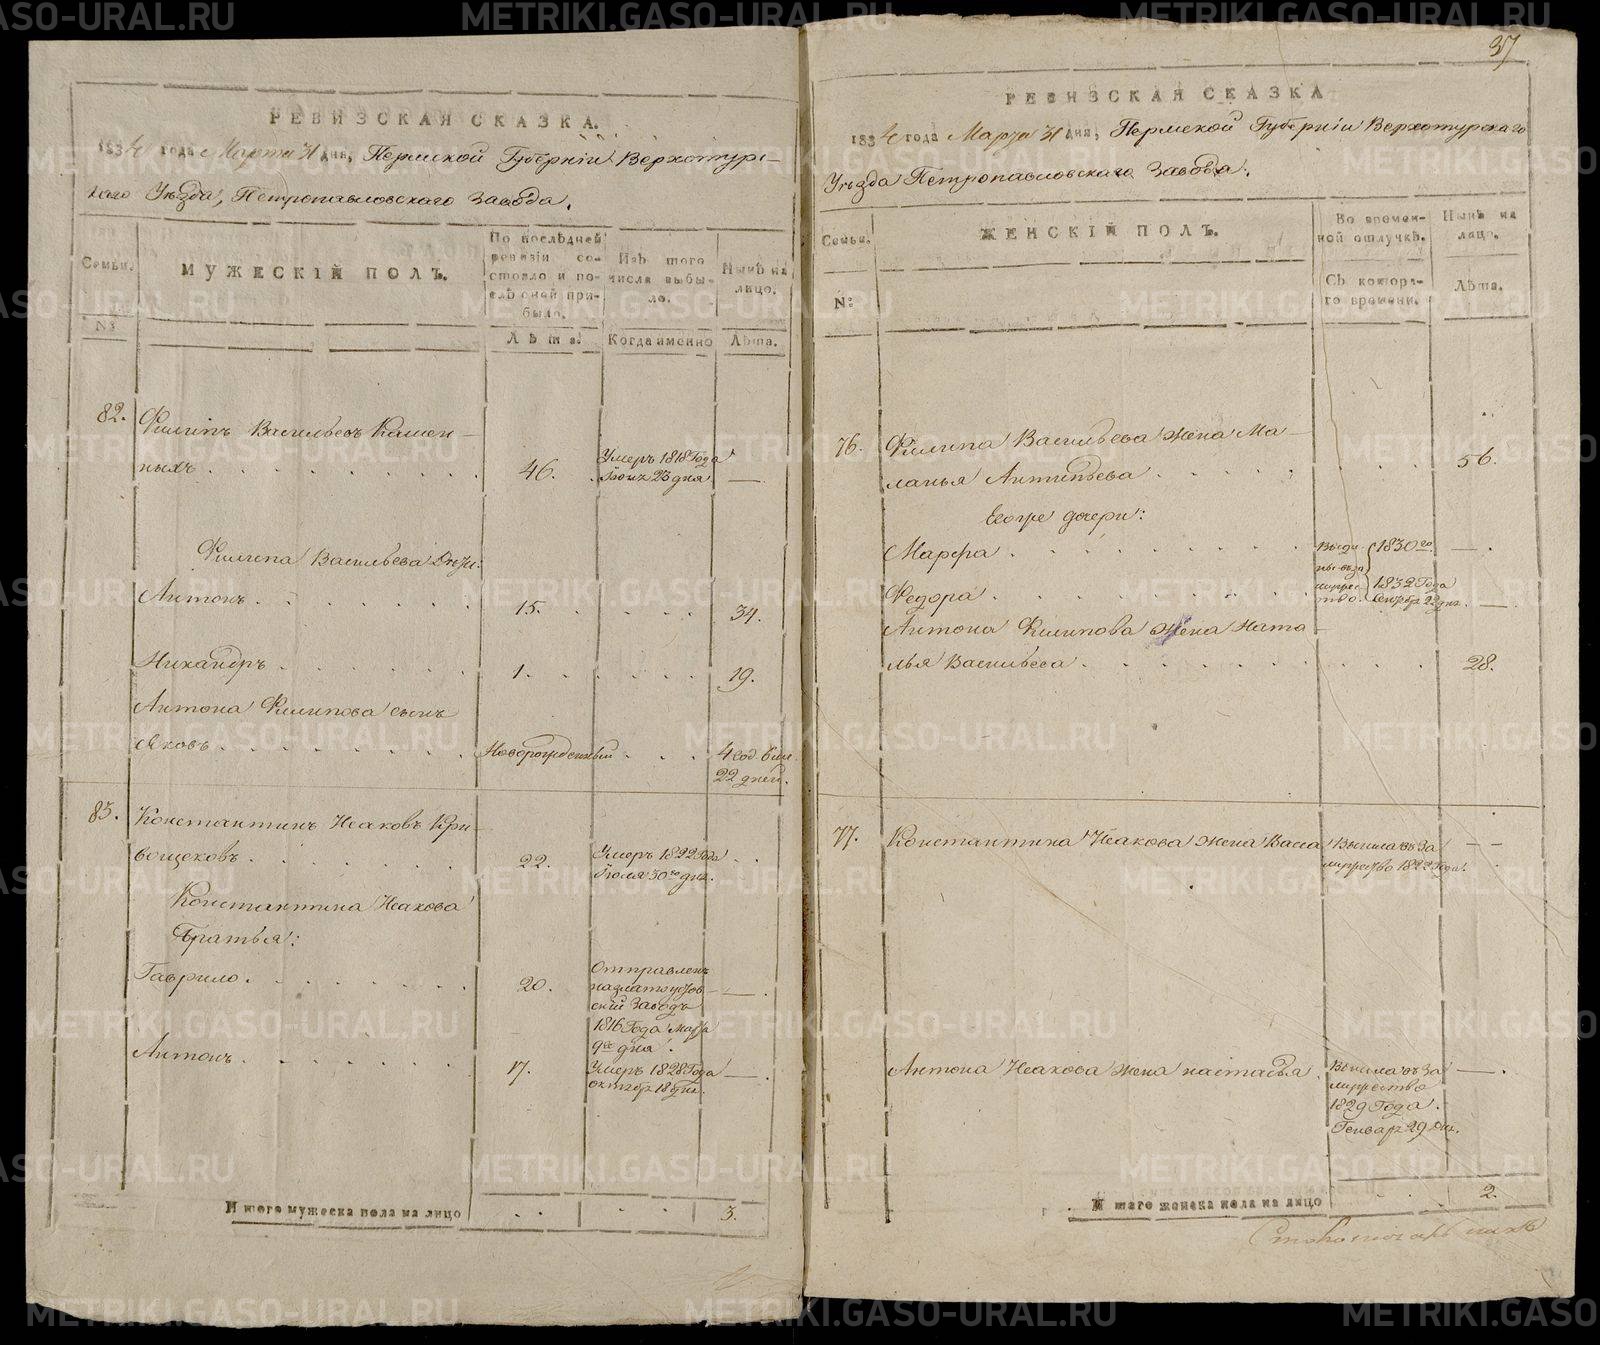 РЕВИЗСКАЯ СКАЗКА.
1834 года Марта 31 дня, Пермской Губернiи Верхотурс-
каго Уѣзда, Петропавловскаго Завода.
Семьи.
№
МУЖЕСКІЙ ПОЛЪ.
По послѣдней ревизіи состояло и послѣ оной прибыло.
Лѣта.
Изъ того числа выбыло.
Когда именно
Нынѣ на лицо.
Лѣта.
82. Филипъ Васильевъ Камен-
ныхъ 46. Умеръ 1818 Года
Іюня 23 дня —
Филипа Васильева Дѣти:
Антонъ 15. 34.
Никандръ 1. 19.
Антона Филипова сынъ
Яковъ Новорожденный 4 год. 6 м.
22 дней.
83. Константинъ Исаковъ Кри-
вощековъ 22. Умеръ 1822 Года
Іюля 30го дня.
Константина Исакова
Братья:
Гаврило 20. Отправленъ
на Златоустов-
ский Заводъ
1816 Года Мар.
9го дня.
Антонъ 17. Умеръ 1828 Года
октябр. 18 дня.
Итого мужеска пола на лицо 3.
37
РЕВИЗСКАЯ СКАЗКА
1834 года Марта 31 дня, Пермской Губернiи Верхотурскаго
Уѣзда Петропавловскаго Завода.
Семьи.
№
ЖЕНСКІЙ ПОЛЪ.
Во времен-
ной отлучкѣ.
Съ котора-
го времени.
Нынѣ на
лицо.
Лѣта.
76. Филипа Васильева жена Ма-
ланья Антипьева 56.
Его же дочери:
Марфа 1830го —
Федора 1832 Года —
Антона Филипова жена Ната-
лья Васильева 28.
77. Константина Исакова жена Васса Вышла въ за-
мужство 1822 Года.
Антона Исакова жена настасья Вышла въ за
мужество
1829 Года
Генваря 29 дня.
Итого женска пола на лицо 2.
METRIKI.GASO-URAL.RU